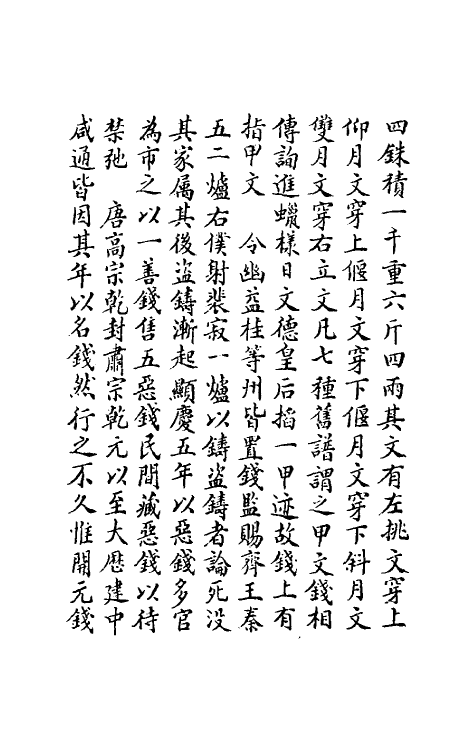 四銖積一千重六斤四兩其文有左挑文穿上
仰月文穿上偃月文穿下偃月文穿下斜月文
雙月文穿右立文凡七種舊譜謂之甲文錢相
傳詢進蠟様日文德皇后掐一甲迹故錢上有
指甲文　令幽益桂等州皆置錢監賜齊王秦
五二爐右僕射裴寂一爐以鑄盜鑄者論死没
其家属其後盜鑄漸起顯慶五年以惡錢多官
為市之以一善錢售五惡錢民間藏惡錢以待
禁弛　唐高宗乾封肅宗乾元以至大厯建中
咸通皆因其年以名錢然行之不久惟開元錢